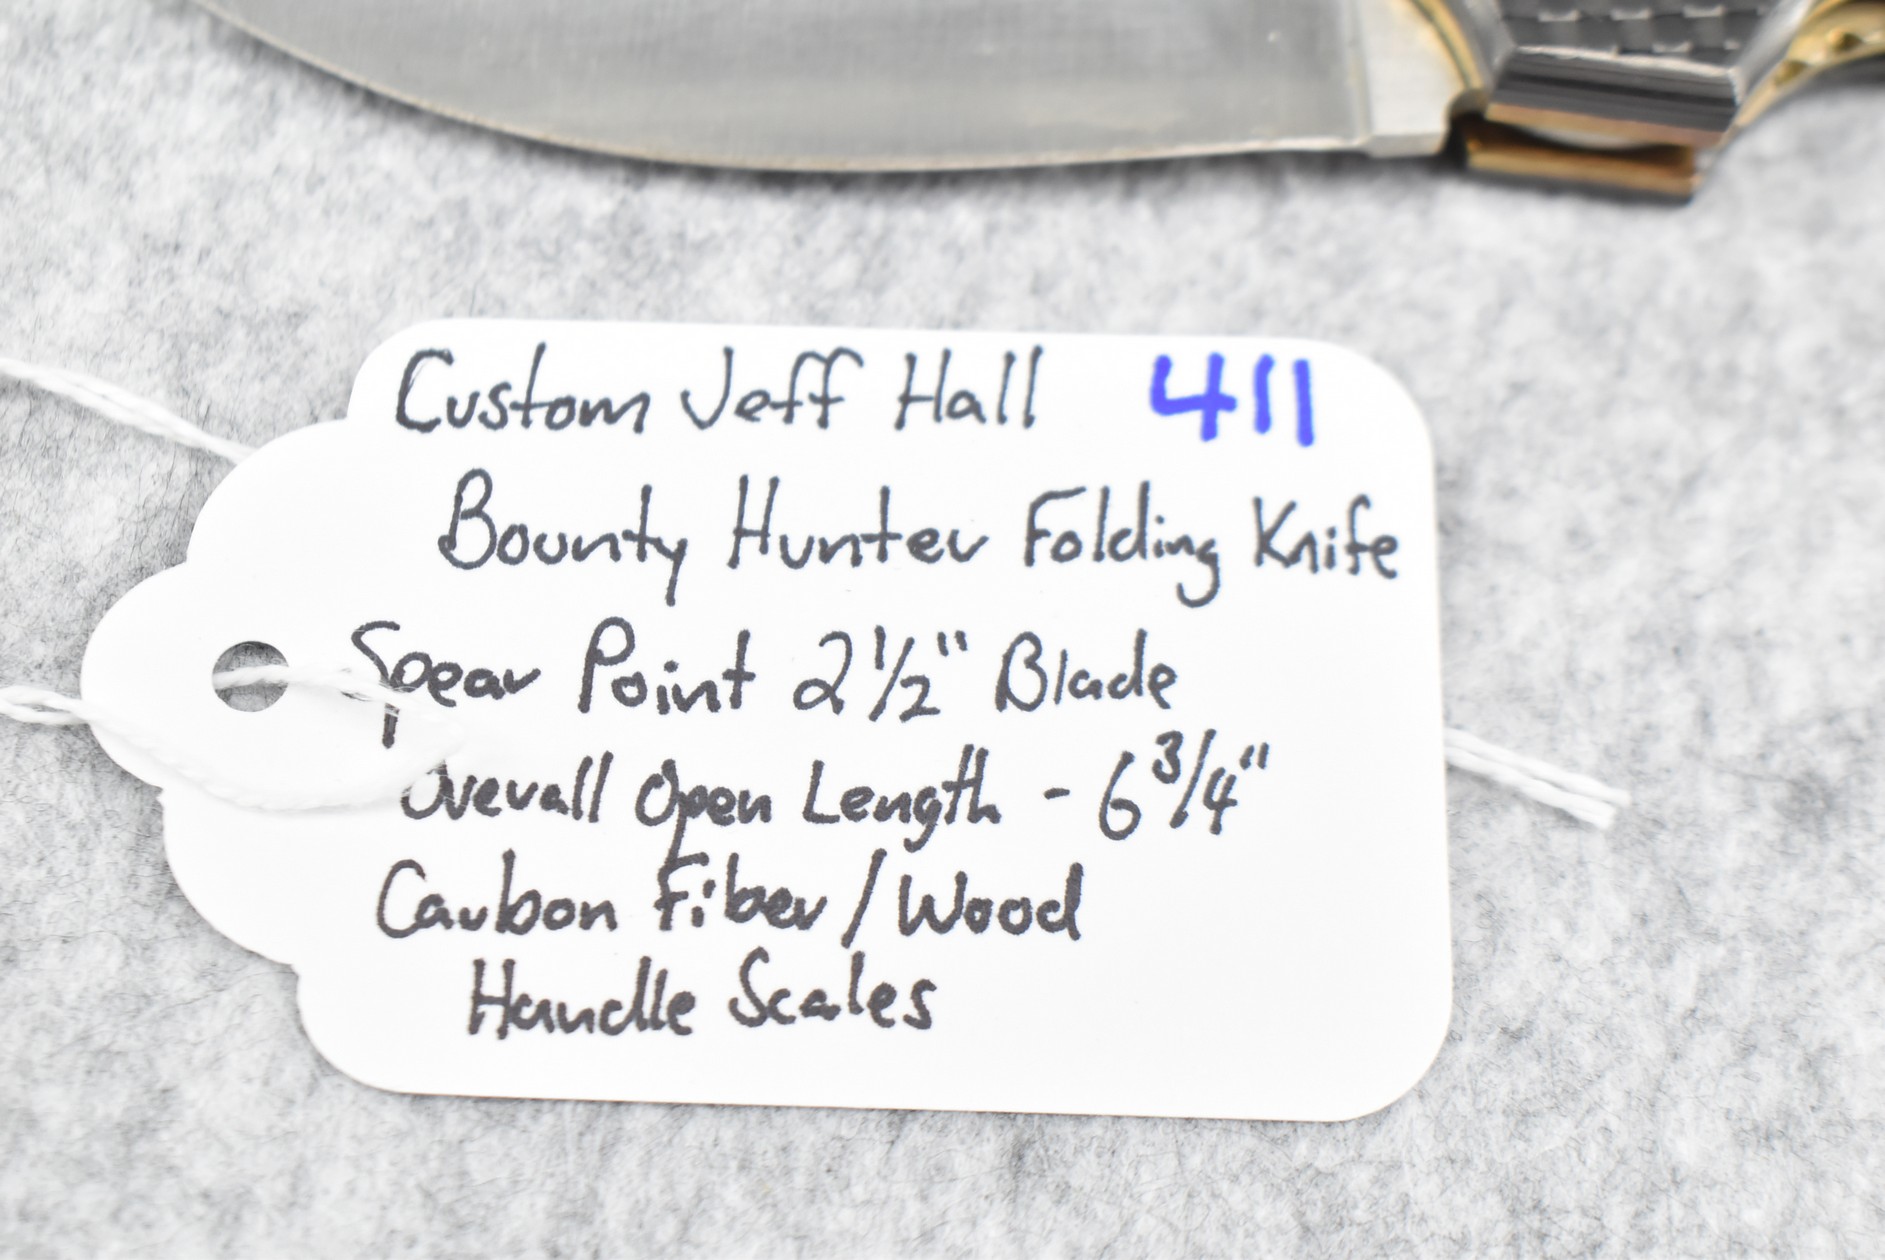 Custom Jeff Hall 411
Bounty Hunter Folding Knife
Spear Point 2 1/2" Blade
Overall Open Length - 6 3/4"
Carbon Fiber / Wood
Handle Scales